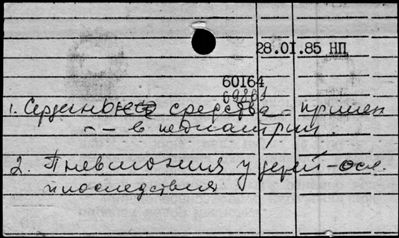 28.01.85 НП
60164
1. Сердечные средства - примен
-"- в педиатрии.
2. Пневмония у детей - осл.
и последствия